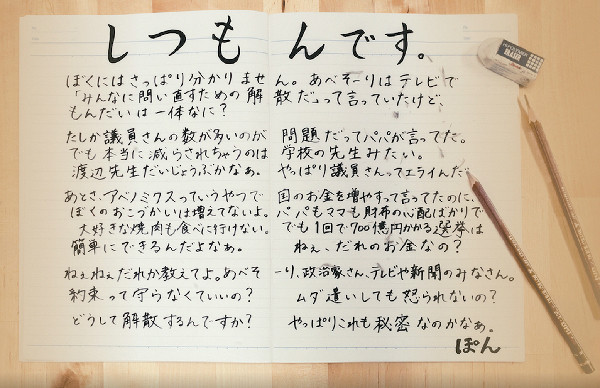 しつもんです。
ぼくにはさっぱり分かりません。あべそーりはテレビで
「みんなに問い直すための解散だ」って言っていたけど、
もんだいは一体なに？
たしか議員さんの数が多いのが問題だってパパが言ってた。
でも本当に減らされちゃうのは学校の先生みたい。
渡辺先生だいじょうぶかなぁ。やっぱり議員さんってエライんだ。
あとさ、アベノミクスっていうやつで国のお金を増やすって言ってたのに、
ぼくのおこづかいは増えてないよ。パパもママも財布の心配ばかりで
大好きな焼肉も食べに行けない。でも1回で700億円かかる選挙は
簡単にできるんだよなぁ。ねぇ、だれのお金なの？
ねぇねぇだれか教えてよ。あべそーり、政治家さん、テレビや新聞のみなさん。
約束って守らなくていいの？ムダ遣いしても怒られないの？
どうして解散するんですか？やっぱりこれも秘密なのかなぁ。
ぽん